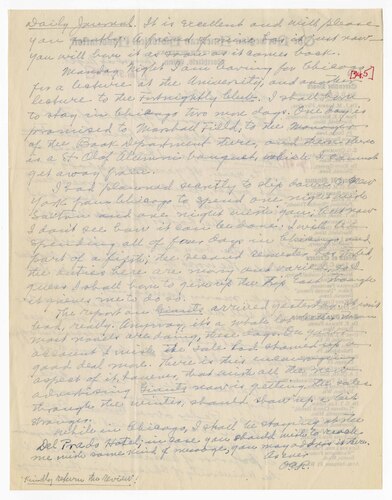 Daily Journal. It is excellent and will please
you
you will have it as soon as it comes back.
Monday night I am leaving for Chicago
[1945]
for a lecture at the University, and another
lecture to the Fortnightly Club. I shall have
to stay in Chicago two more days. One day is
promised to Marshall Field, to the Manager
of the Book Department there, and then there
is a St. Olaf Alumni banquet which I cannot
get away from.
I had planned secretly to slip down to New
York from Chicago to spend one night with
and one night with you, but now
I don't see how it can be done. I will be
spending all of four days in Chicago, and
part of a fifth; the second semester
the duties here are many and varied, so I
guess I shall have to give up the trip, and though
it grieves me to do so.
The report on Giants arrived yesterday. It isn't
bad, really. Anyway, it's a whole lot better than
most novels are doing, these days. On
account I wish the sale had showed up a
good deal more. There is this encouraging
aspect of it, however, that with all the new
advertising Giants now is getting the sales
through the winter should show up a lot
stronger.
While in Chicago, I shall be staying at the
Del Prado Hotel; in case you should wish to reach
me with some kind of message, you may address it there.
As ever
O.E.R.
Kindly return the review!